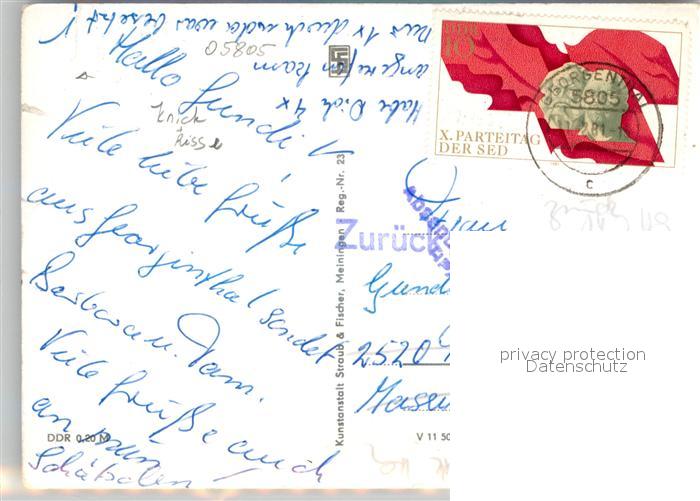 Habe Dich 4x
angerufen kam
nur 1x durch u. da war besetzt!
05805
Hallo Gundi!
Knick
+
Risse
Viele liebe Grüße
aus Georgenthal sendet
Barbara u. Fam.
Viele Grüße auch
an mein
Schätzelein
DDR 0,20 M
Kunstanstalt Straub & Fischer, Meiningen Reg.-Nr. 23
V 11 50
DDR
10
X. PARTEITAG
DER SED
GEORGENTHAL
5805
c
Zurück
Frau
Gund
2520
privacy protection
Datenschutz